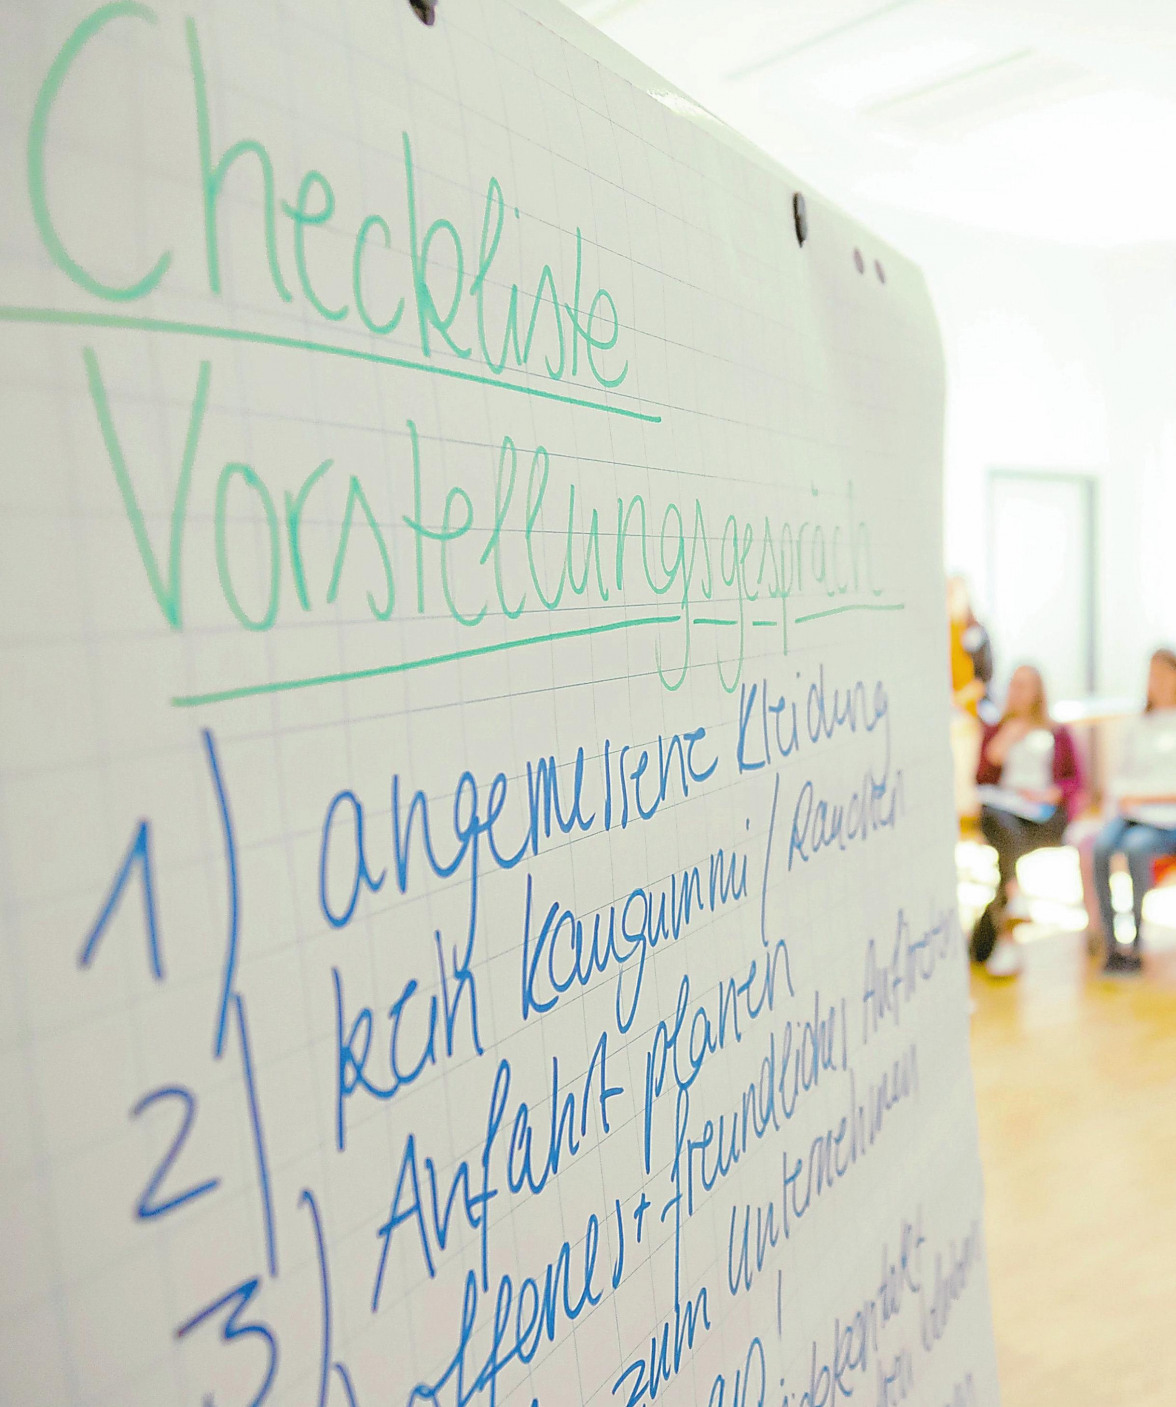 Checkliste
Vorstellungsgespräch
1) angemessene Kleidung
2) kein Kaugummi / Rauchen
3) Anfahrt planen
offenes + freundliches Auftreten
zum Unternehmen